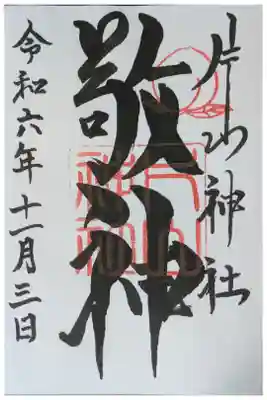 片山神社
敬神
令和六年十一月三日